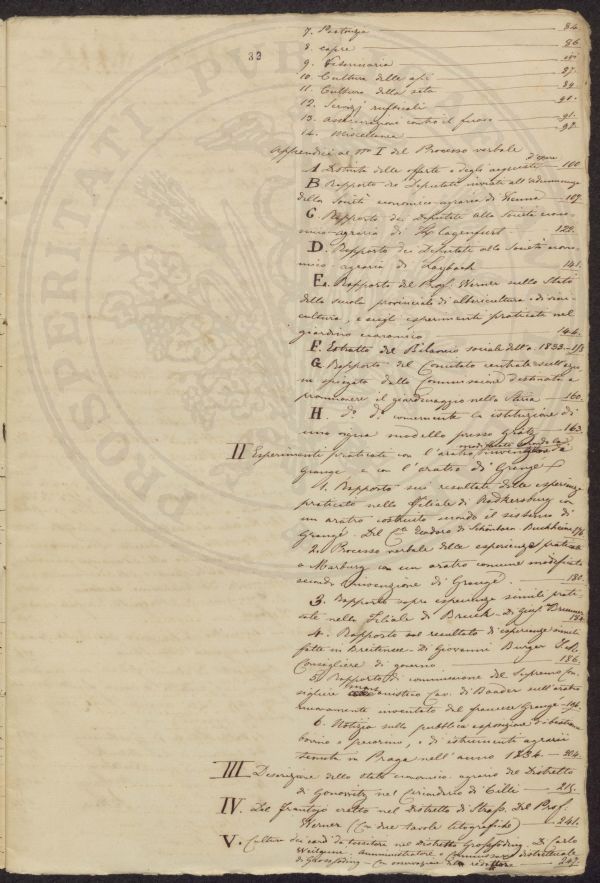 7. Pastorizia 84.
33
8. capre 86.
9. Veterinaria ivi
10. Cultura delle api 87.
11. Cultura della seta 89.
12. Servizj rusticali 90.
13. Assicurazioni contro il fuoco 91.
14. Miscellanea 92.
Appendici al N.ro I del Processo verbale
A Distinta delle offerte e degli acquisti d'opere 100.
B Rapporto dei Deputati inviati all'adunanza
della Società economico-agraria di Vienna 107.
C. Rapporto dei Deputati alla Società econo-
mico-agraria di Klagenfurt 122.
D. Rapporto dei Deputati alla Società econo-
mico-agraria di Laybach 141.
E. Rapporto del Prof. Werner sullo Stato
della scuola provinciale di albericultura e di
cultura, e sugli esperimenti praticati nel
giardino 144.
F. Estratto del Bilancio sociale dell'a. 1833.
G. Rapporto del Comitato centrale
spiegata dalla Commissione destinata a
promuovere il giardinaggio nella Stiria 160.
H. d.o d.o concernente la istituzione di
una vigna modello presso Gratz 163.
II Esperimenti praticati con l'aratro modificato secondo la invenzione di
Grangé e con l'aratro di Grangé
1. Rapporto sui resultati delle esperienze
praticate nella Filiale di Radkersburg con
un aratro costruito secondo il sistema di
Grangé. Del Cte Teodoro di Schönborn Buchheim 176.
2. Processo verbale delle esperienze praticate
a Marburg con un aratro comune modificato
secondo l'invenzione di Grangé. 180.
3. Rapporto sopra esperienze simili prati-
cate nella Filiale di Bruck - di Gius.
4. Rapporto sul resultato di esperienze simili
fatte in - di Giovanni Burger I. R.
Consigliere di governo 186.
5. Rapporto di commissione del Supremo Con-
sigliere Cav. di Baader sull'aratro
nuovamente inventato del francese Grangé 196.
6. Notizia sulla pubblica esposizione di bestiame
bovino e pecorino, e di istrumenti agrarii
tenuta in Praga nell'anno 1834. 204.
III Descrizione dello stato economico-agrario del Distretto
di Gonovitz nel Circondario di Cilli 215.
IV. Del Frantojo eretto nel distretto di Strass. Del Prof.
Werner (Con due tavole litografiche) 241.
V. Cultura dei cardi da tessitore nel Distretto Grossföding. Di Carlo
Amministratore e Commissario distrettuale
di Grossföding - Con 247.